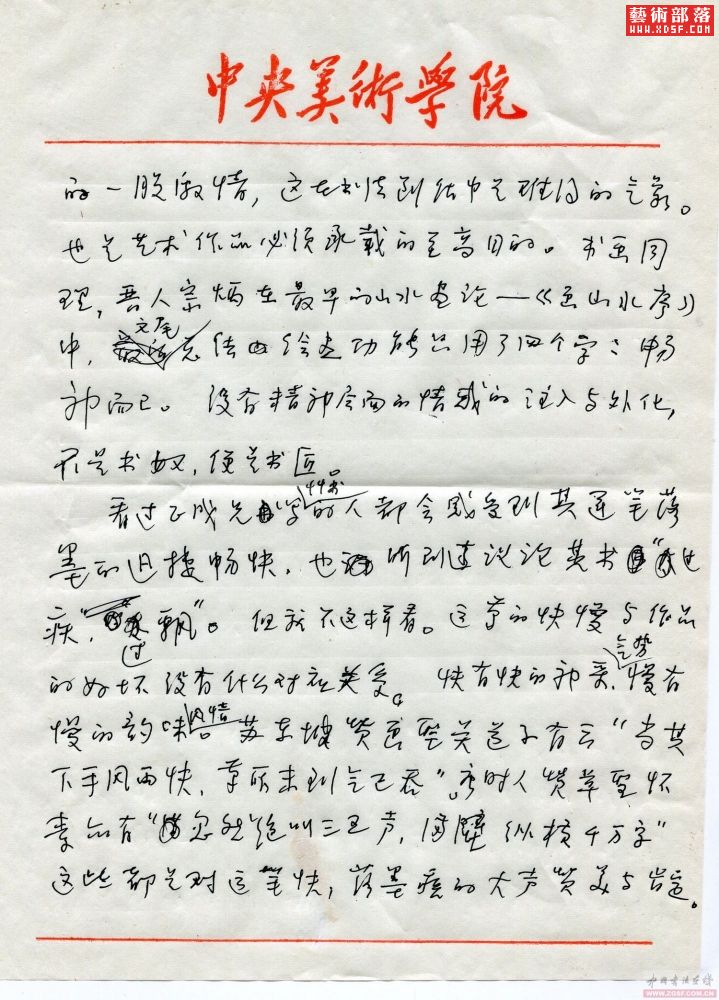 藝術部落
www.XDSF.com
中央美術學院
的一股激情，这在书法创作中是难得的气象。
也是艺术作品必须承载的至高目的。书画同
理，晋人宗炳在最早的山水画论—《画山水序》
文尾
中，总结绘画功能只用了四个字：畅
神而已。没有精神层面的情感的注入与外化，
不是书奴，便是书匠。
作书
看过正成兄的人都会感受到其运笔落
墨的迅捷畅快，也听到过议论其书“过
疾”，“过飘”。但我不这样看。运笔的快慢与作品
气势
的好坏没有什么对应关系。快有快的神采，慢有
内情
慢的韵味。苏东坡赞画圣吴道子有云“当其
下手风雨快，笔所未到气已吞”。唐时人赞草圣怀
素亦有“忽然绝叫三五声，满壁纵横千万字”
这些都是对运笔快，落墨疾的大声赞美与肯定。
中国书法在线
WWW.ZGSF.COM.CN